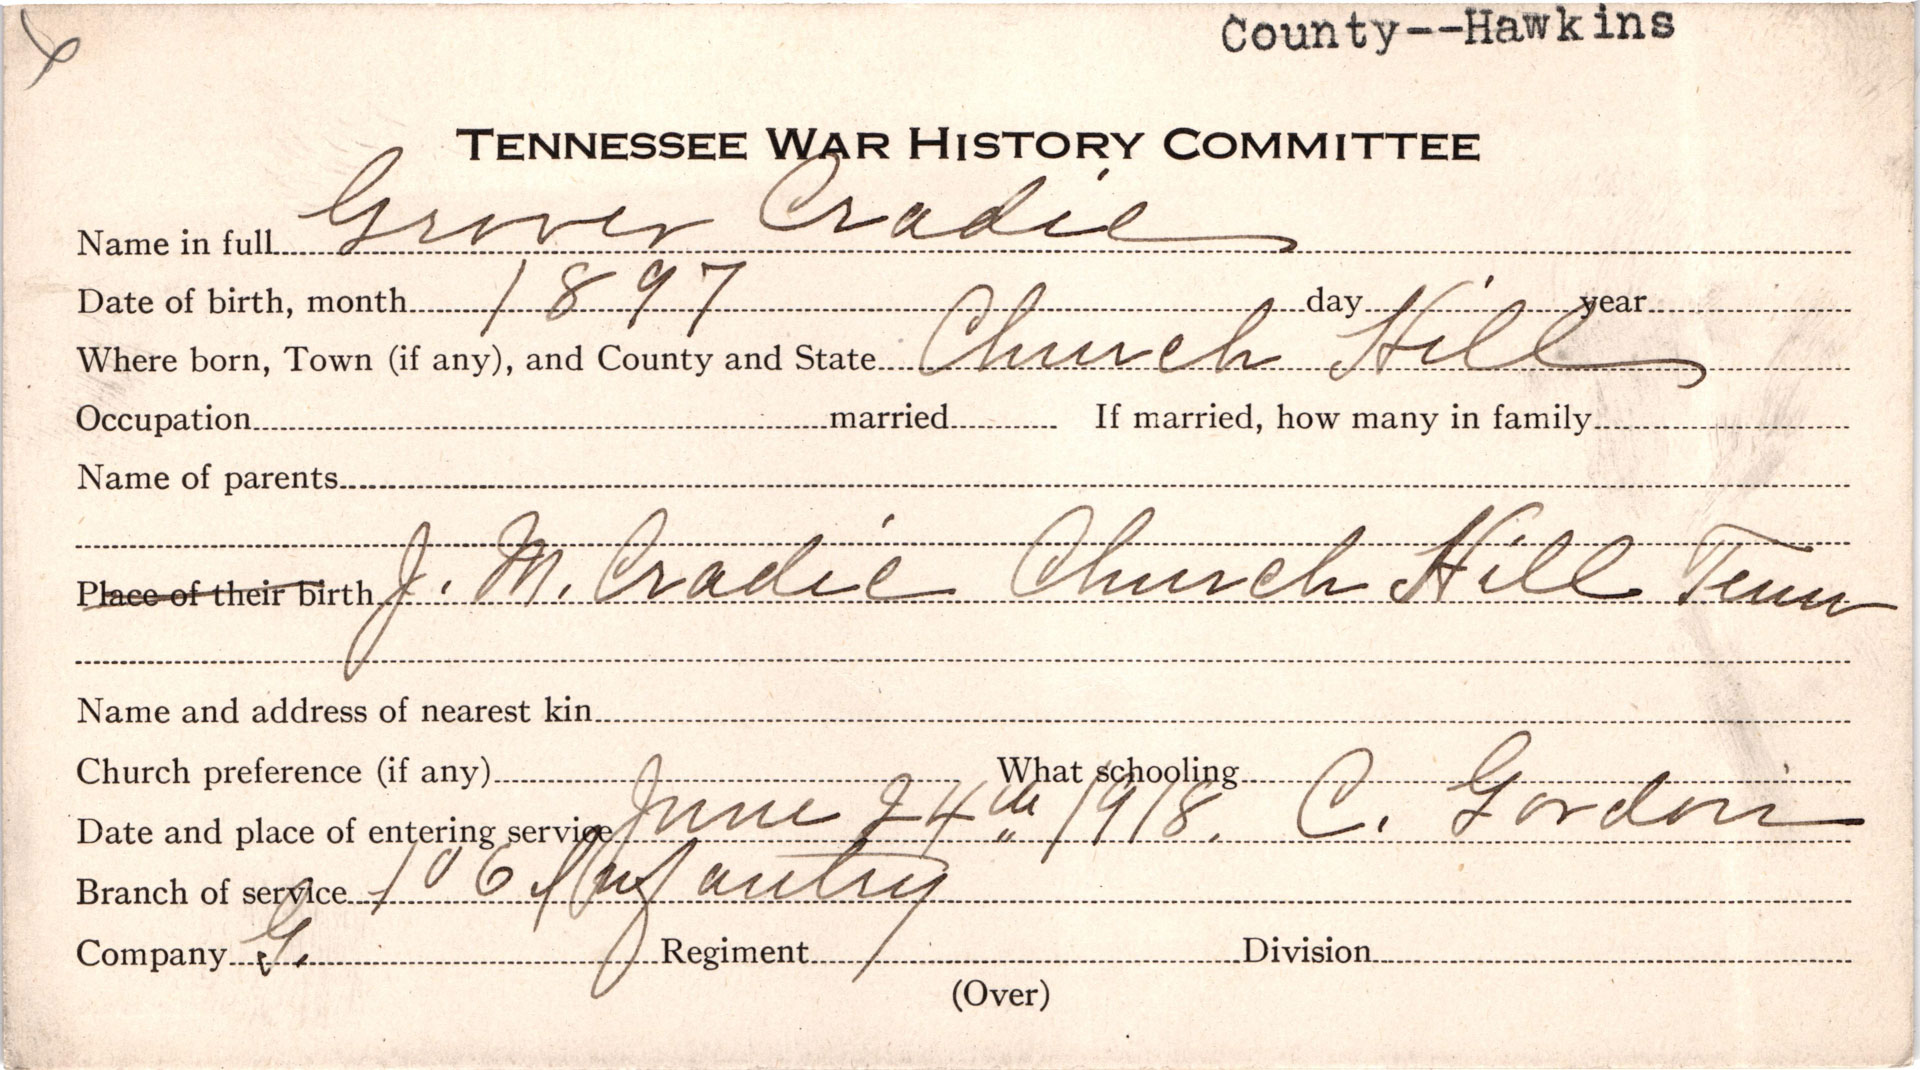 County--Hawkins
TENNESSEE WAR HISTORY COMMITTEE
Name in full Grover Cradic
Date of birth, month 1897 day year
Where born, Town (if any), and County and State Church Hill
Occupation married If married, how many in family
Name of parents
Place of their birth J. M. Cradic Church Hill Tenn
Name and address of nearest kin
Church preference (if any) What schooling
Date and place of entering service June 24th 1918. C. Gordon
Branch of service 106 Infantry
Company G. Regiment Division
(Over)